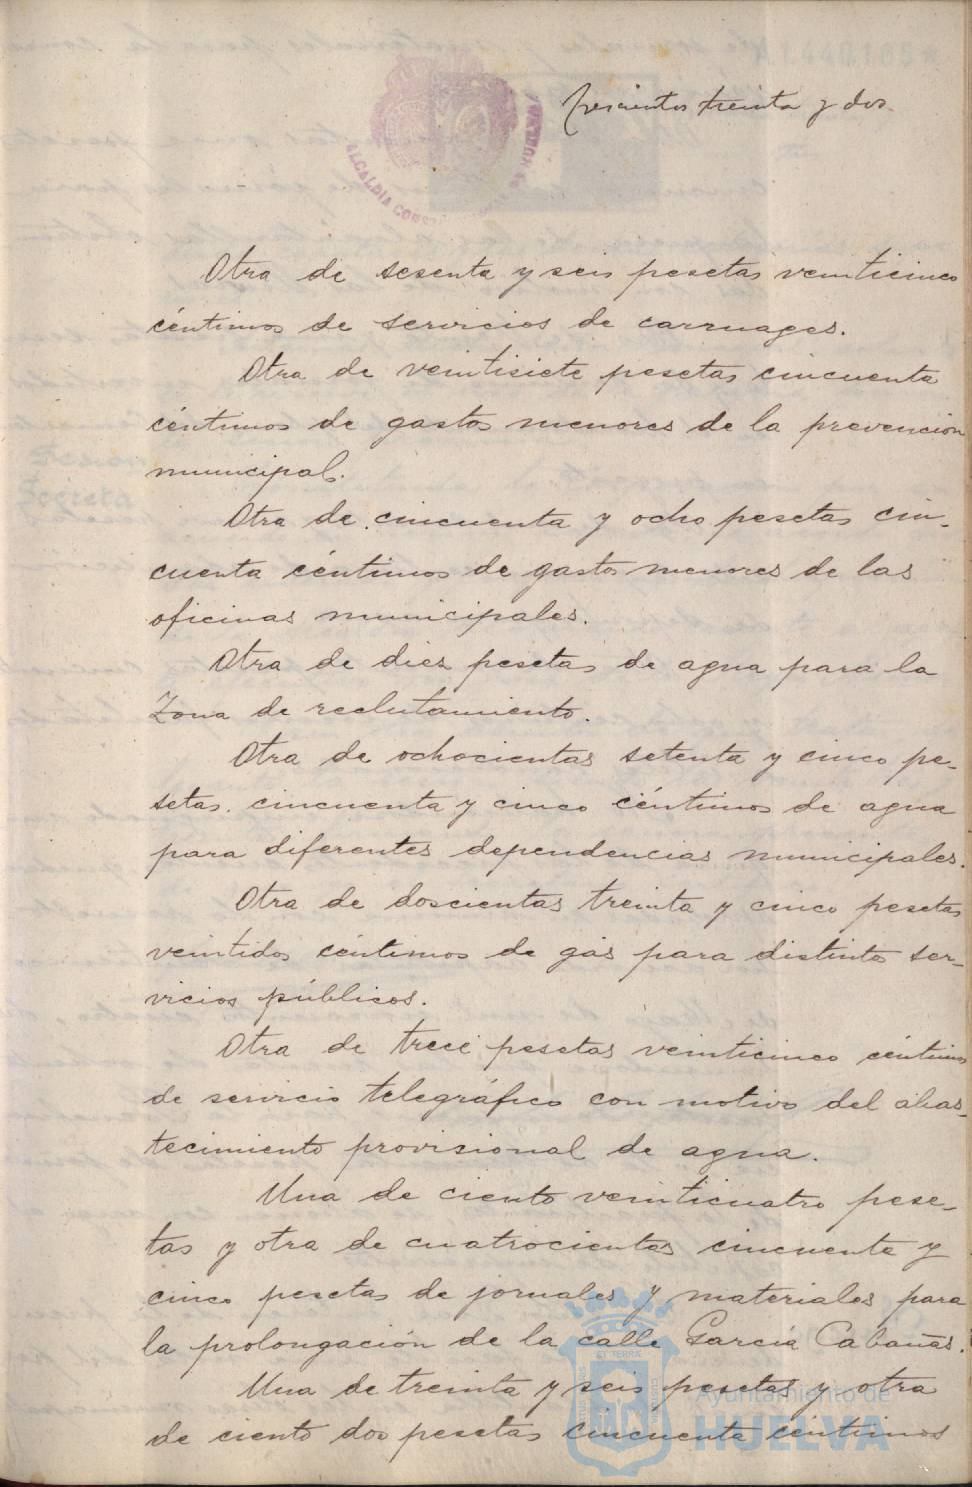 Trescientos treinta y dos.
ALCALDIA CONST
Otra de sesenta y seis pesetas veinticinco
céntimos de servicios de carruages.
Otra de veintisiete pesetas cincuenta
céntimos de gastos menores de la prevención
municipal.
Otra de cincuenta y ocho pesetas cin-
cuenta céntimos de gastos menores de las
oficinas municipales.
Otra de diez pesetas de agua para la
Zona de reclutamiento.
Otra de ochocientas setenta y cinco pe-
setas cincuenta y cinco céntimos de agua
para diferentes dependencias municipales.
Otra de doscientas treinta y cinco pesetas
veintidos céntimos de gas para distintos ser-
vicios públicos.
Otra de trece pesetas veinticinco céntimos
de servicio telegráfico con motivo del abas-
tecimiento provisional de agua.
Una de ciento veinticuatro pese-
tas y otra de cuatrocientas cincuenta y
cinco pesetas de jornales y materiales para
la prolongación de la calle García Cabañas.
Una de treinta y seis pesetas y otra
de ciento dos pesetas cincuenta céntimos
Ayuntamiento de
HUELVA